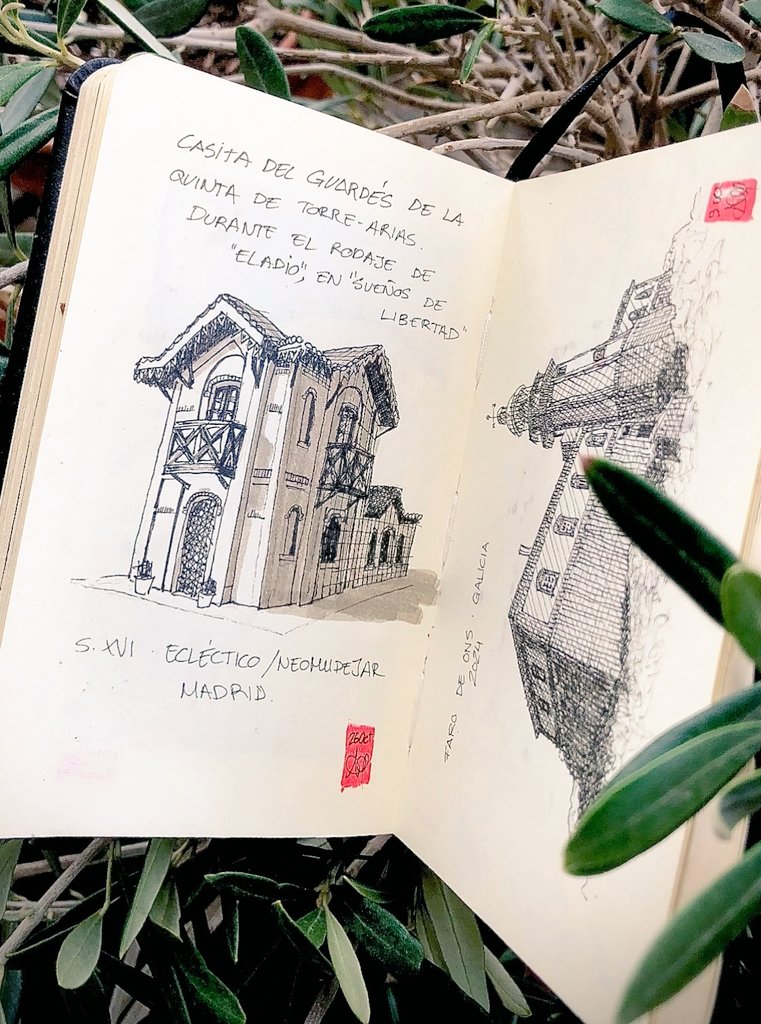 CASITA DEL GUARDÉS DE LA
QUINTA DE TORRE-ARIAS.
DURANTE EL RODAJE DE
"ELADIO", EN "SUEÑOS DE
LIBERTAD"
S. XVI · ECLÉCTICO / NEOMUDEJAR
MADRID.
26 Oct
FARO DE ONS · GALICIA
2024